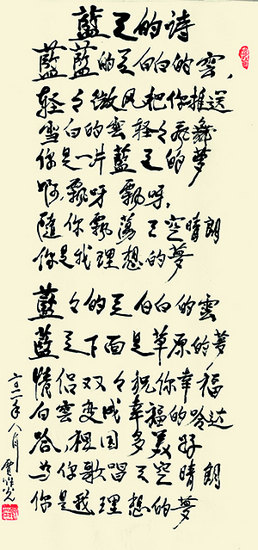 藍天的诗
藍藍的天白白的雲，
轻々微风把你推送
雪白的雲轻々飛舞
你是一片藍天的梦
啊，飘呀飘呀，
隨你飘荡天空晴朗
你是我理想的梦
藍々的天白白的雲
藍天下面是草原的梦
情侣双々祝你幸福
白雲变成幸福的哈达
哈，祖国多美好
与你歌唱天空晴朗
你是我理想的梦
二〇二一年八月